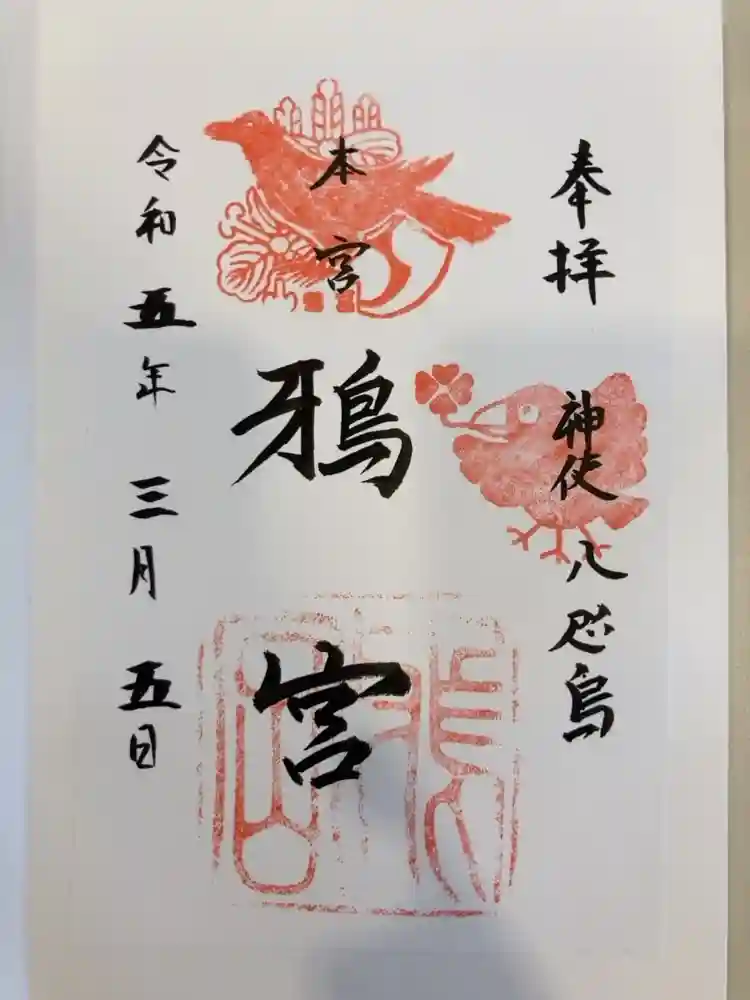 奉拝
神使 八咫烏
本宮
鴉宮
令和五年三月五日